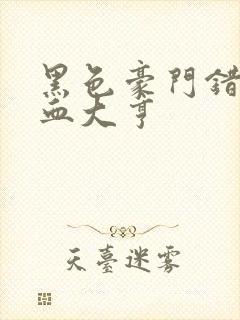 黑色豪門錯
血大亨
天臺迷霧